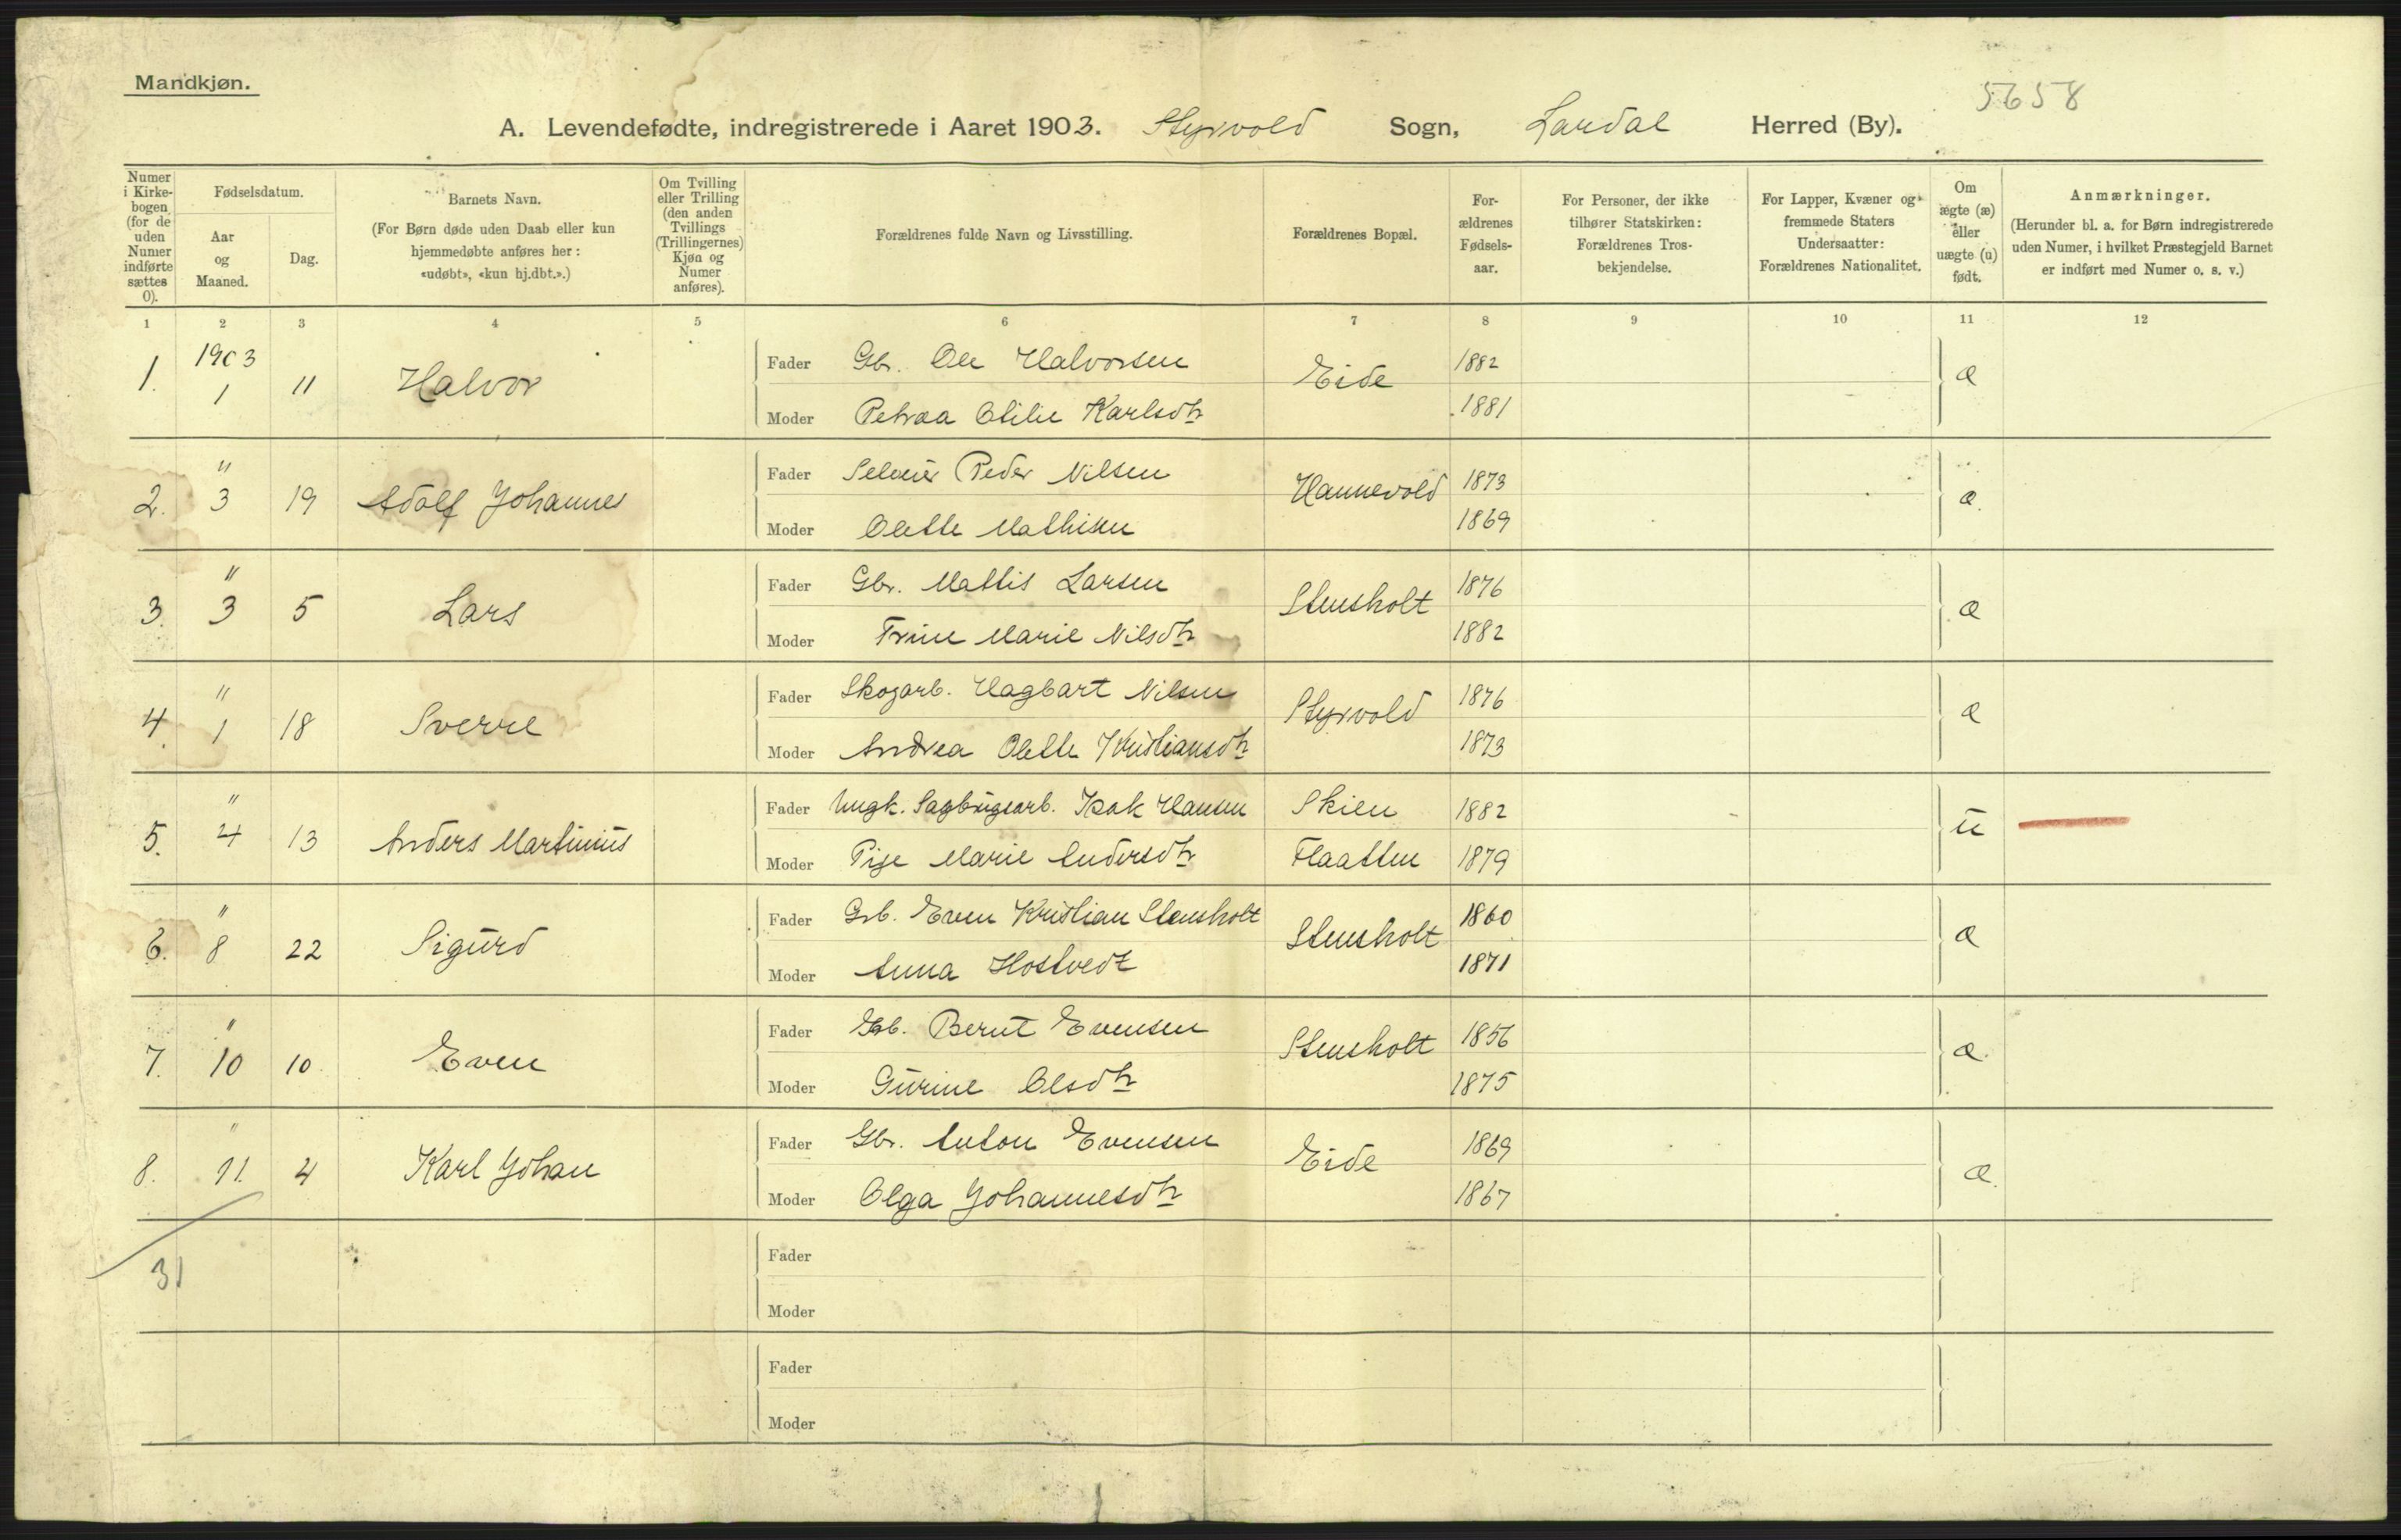 Mandkjøn.
5658
A. Levendefødte, indregistrerede i Aaret 1903. Styrvold Sogn, Lardal Herred (By).
Numer i Kirkebogen (for de uden Numer indførte sættes 0).
Fødselsdatum.
Aar og Maaned.
Dag.
Barnets Navn.
(For Børn døde uden Daab eller kun hjemmedøbte anføres her: «udøbt», «kun hj.dbt.».)
Om Tvilling eller Trilling (den anden Tvillings (Trillingernes) Kjøn og Numer anføres).
Forældrenes fulde Navn og Livsstilling.
Forældrenes Bopæl.
Forældrenes Fødselsaar.
For Personer, der ikke tilhører Statskirken: Forældrenes Trosbekjendelse.
For Lapper, Kvæner og fremmede Staters Undersaatter: Forældrenes Nationalitet.
Om ægte (æ) eller uægte (u) født.
Anmærkninger.
(Herunder bl. a. for Børn indregistrerede uden Numer, i hvilket Præstegjeld Barnet er indført med Numer o. s. v.)
1 2 3 4 5 6 7 8 9 10 11 12
1. 1903 1 11 Halvor Fader Gbr. Ole Halvorsen Eide 1882 æ
Moder Petraa Otilie Karlsdtr 1881
2. " 3 19 Adolf Johannes Fader Peder Nilsen Hannevold 1873 æ
Moder Olette Mathisen 1869
3. " 3 5 Lars Fader Gbr. Mattis Larsen Stensholt 1876 æ
Moder Trine Marie Nilsdtr 1882
4. " 1 18 Sverre Fader Skogarb. Hagbart Nilsen Styrvold 1876 æ
Moder Andrea Olette Kristiansdtr 1873
5. " 4 13 Anders Martinius Fader Ungk. Sagbrugsarb. Isak Hansen Skien 1882 u
Moder Pige Marie Andersdtr Flaatten 1879
6. " 8 22 Sigurd Fader Grb. Even Kristian Stensholt Stensholt 1860 æ
Moder Anna Hostvedt 1871
7. " 10 10 Even Fader Gb. Bernt Evensen Stensholt 1856 æ
Moder Gurine Olsdtr 1875
8. " 11. 4 Karl Johan Fader Gbr. Anton Evensen Eide 1869 æ
Moder Olga Johannesdtr 1867
31
Fader
Moder
Fader
Moder